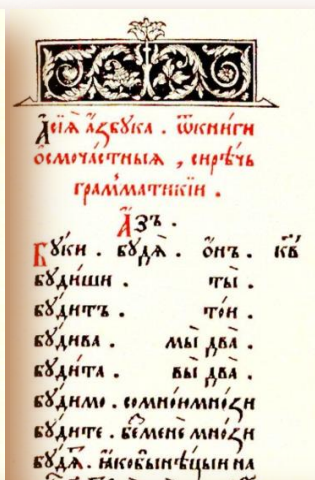 А҆сїѧ̀ а҆́збꙋка . ѿкни́ги
ѻ҆смоча́стныѧ , сирѣ́чь
грамма́тикїи .
А҆́зъ .
Бꙋ́ки . бꙋдѧ̀ . ѻ҆́нъ . кв҃
бꙋ́диши . ты̀ .
бꙋ́дитъ . то́и .
бꙋ́дива . мы̀ два̀ .
бꙋ́дита . вы̀ два̀ .
бꙋ́димо . сомно́имно́ѕи
бꙋ́дите . бе́менѐ мно́ѕи
бꙋ́дѧ̀ . ꙗ҆́кобынѣ́цыи на